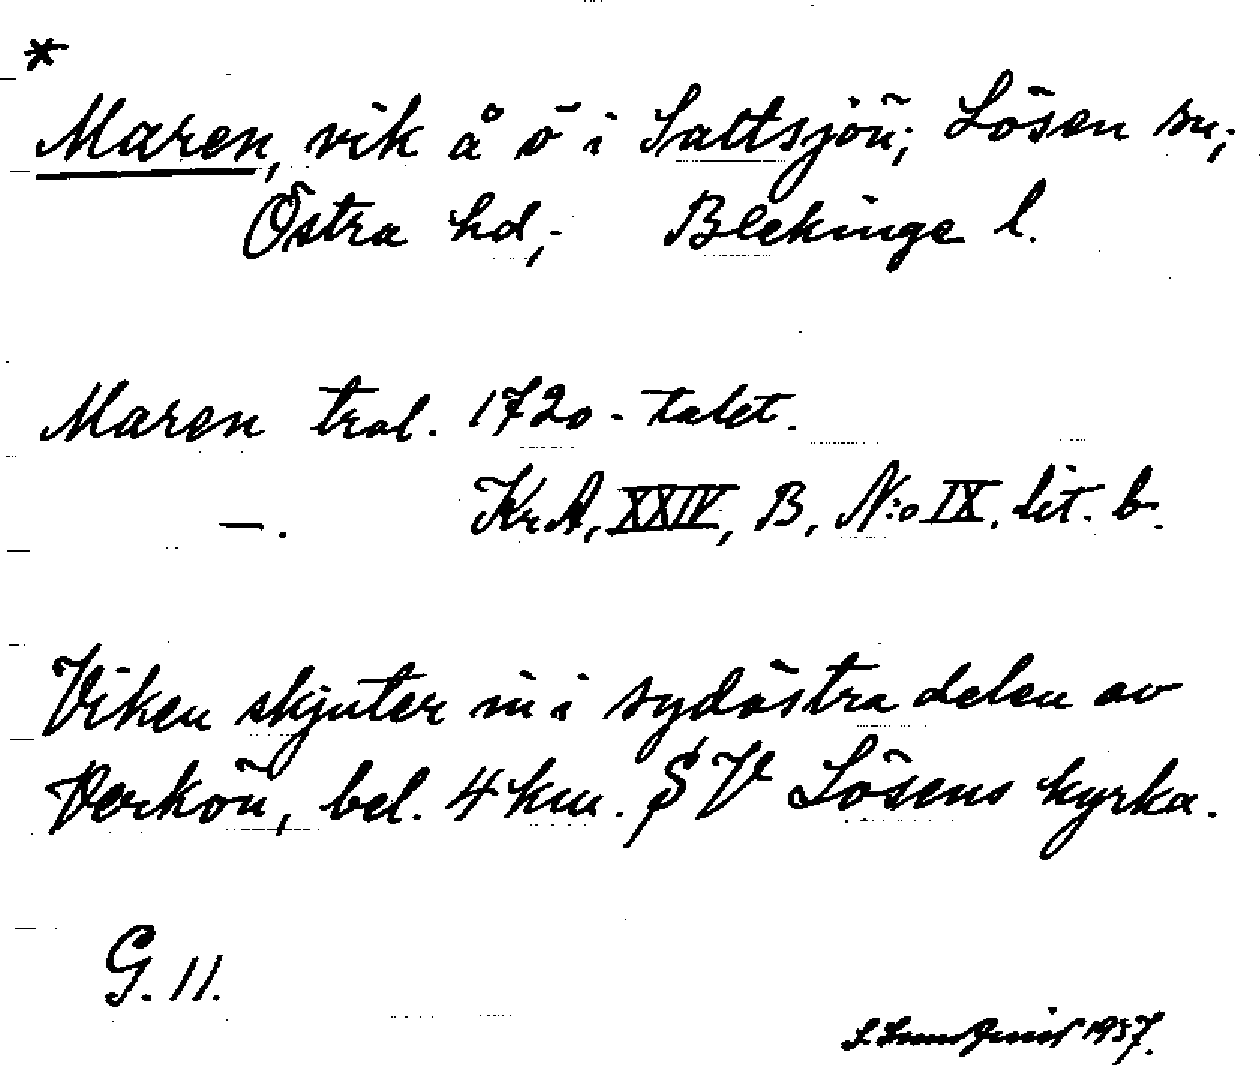 *
Maren, vik å ö i Saltsjön; Lösen sn;
Östra hd,- Blekinge l.
Maren tral. 1720-talet.
—. KrA, XXIV, B, N:o IX. lit. b.
Viken skjuter in i sydöstra delen av
Verkön, bel. 4 km. S V Lösens kyrka.
G. 11.
1937.